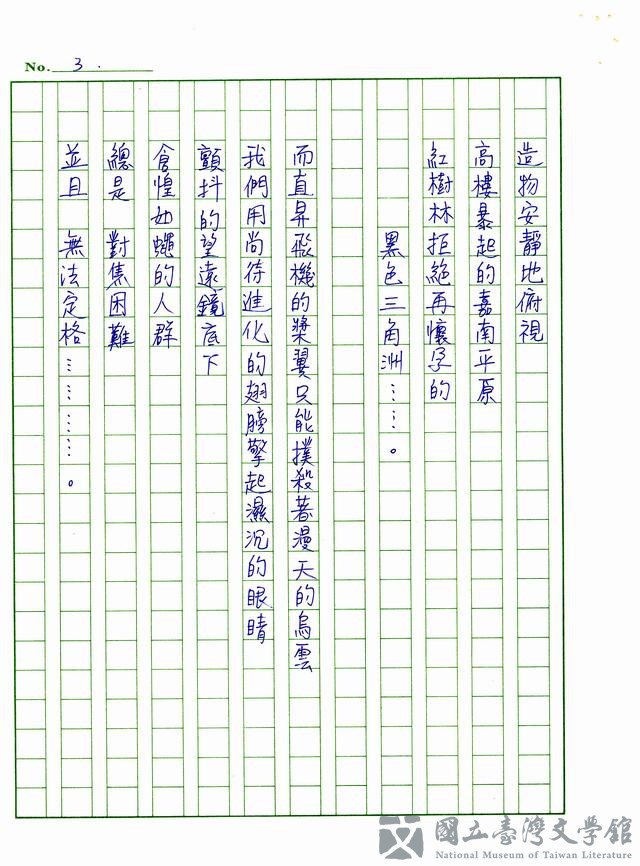 No. 3.
造物安靜地俯視
高樓暴起的嘉南平原
紅樹林拒絕再懷孕的
黑色三角洲……。
而直昇飛機的槳翼只能撲殺著漫天的烏雲
我們用尚待進化的翅膀擎起濕沉的眼睛
顫抖的望遠鏡底下
倉惶如蠅的人群
總是 對焦困難
並且 無法定格…………。
國立臺灣文學館
National Museum of Taiwan Literature